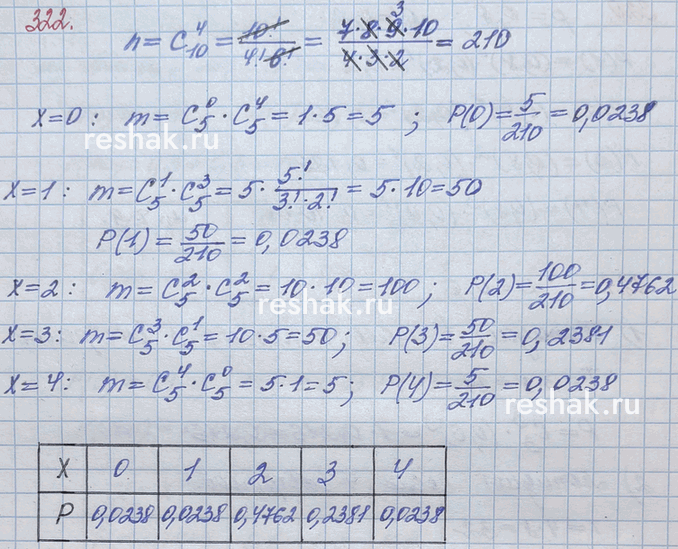 322.
n = C₁₀⁴ = 10!/(4!·6!) = (7·8·9·10)/(4·3·2) = 210
3
X=0: m = C₅⁰·C₅⁴ = 1·5 = 5 ; P(0) = 5/210 = 0,0238
reshak.ru
X=1: m = C₅¹·C₅³ = 5·5!/(3!·2!) = 5·10 = 50
P(1) = 50/210 = 0,0238
X=2: m = C₅²·C₅² = 10·10 = 100; P(2) = 100/210 = 0,4762
reshak.ru
X=3: m = C₅³·C₅¹ = 10·5 = 50; P(3) = 50/210 = 0,2381
X=4: m = C₅⁴·C₅⁰ = 5·1 = 5; P(4) = 5/210 = 0,0238
reshak.ru
X 0 1 2 3 4
P 0,0238 0,0238 0,4762 0,2381 0,0238